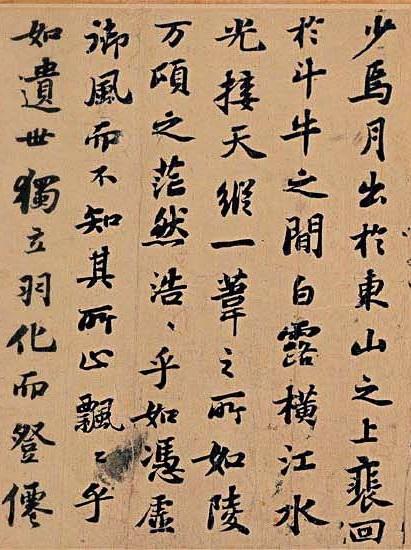 少焉月出於東山之上裵回
於斗牛之間白露橫江水
光接天縱一葦之所如陵
万頃之茫然浩〻乎如馮虛
御風而不知其所止飄〻乎
如遺世獨立羽化而登僊